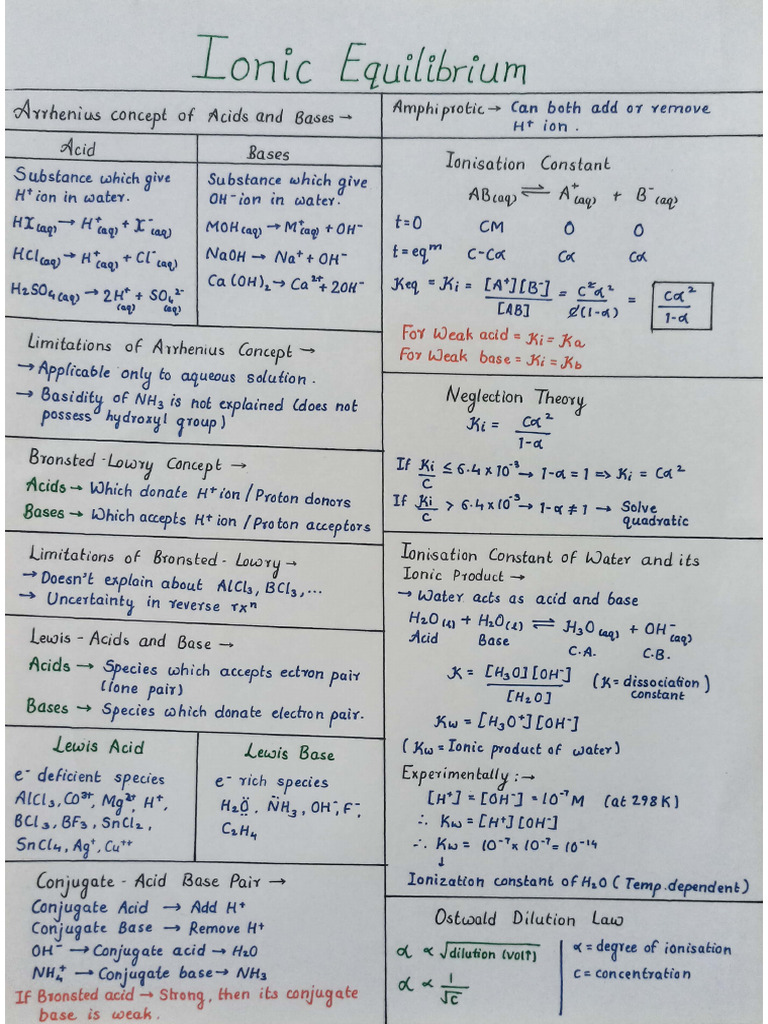 Ionic Equilibrium
Arrhenius concept of Acids and Bases →
Acid
Substance which give
H⁺ ion in water.
HX(aq) → H⁺(aq) + X⁻(aq)
HCl(aq) → H⁺(aq) + Cl⁻(aq)
H2SO4(aq) → 2H⁺(aq) + SO4²⁻(aq)
Bases
Substance which give
OH⁻ ion in water.
MOH(aq) → M⁺(aq) + OH⁻
NaOH → Na⁺ + OH⁻
Ca(OH)2 → Ca²⁺ + 2OH⁻
Limitations of Arrhenius Concept →
→ Applicable only to aqueous solution.
→ Basidity of NH3 is not explained (does not
possess hydroxyl group)
Bronsted-Lowry Concept →
Acids → Which donate H⁺ ion / Proton donors
Bases → Which accepts H⁺ ion / Proton acceptors
Limitations of Bronsted-Lowry →
→ Doesn't explain about AlCl3, BCl3, ...
→ Uncertainty in reverse rxⁿ
Lewis - Acids and Base →
Acids → Species which accepts ectron pair
(lone pair)
Bases → Species which donate electron pair.
Lewis Acid
e⁻ deficient species
AlCl3, CO³⁺, Mg²⁺, H⁺,
BCl3, BF3, SnCl2,
SnCl4, Ag⁺, Cu⁺⁺
Lewis Base
e⁻ rich species
H2Ö, N̈H3, OH⁻, F⁻,
C2H4
Conjugate - Acid Base Pair →
Conjugate Acid → Add H⁺
Conjugate Base → Remove H⁺
OH⁻ → Conjugate acid → H2O
NH4⁺ → Conjugate base → NH3
If Bronsted acid → Strong, then its conjugate
base is weak.
Amphiprotic → Can both add or remove
H⁺ ion.
Ionisation Constant
AB(aq) ⇌ A⁺(aq) + B⁻(aq)
t=0 CM 0 0
t=eqᵐ C-Cα Cα Cα
Keq = Ki = [A⁺][B⁻]/[AB] = C²α²/C(1-α) = Cα²/1-α
For Weak acid = Ki = Ka
For Weak base = Ki = Kb
Neglection Theory
Ki = Cα²/1-α
If Ki/C ≤ 6.4×10⁻³ → 1-α = 1 => Ki = Cα²
If Ki/C > 6.4×10⁻³ → 1-α ≠ 1 → Solve
quadratic
Ionisation Constant of Water and its
Ionic Product →
→ Water acts as acid and base
H2O(l) + H2O(l) ⇌ H3O(aq) + OH⁻(aq)
Acid Base C.A. C.B.
K = [H3O][OH⁻]/[H2O] (K = dissociation constant)
Kw = [H3O⁺][OH⁻]
(Kw = Ionic product of water)
Experimentally :→
[H⁺] = [OH⁻] = 10⁻⁷ M (at 298K)
∴ Kw = [H⁺][OH⁻]
∴ Kw = 10⁻⁷ × 10⁻⁷ = 10⁻¹⁴
↓
Ionization constant of H2O (Temp. dependent)
Ostwald Dilution Law
α ∝ √dilution (vol↑)
α ∝ 1/√C
α = degree of ionisation
C = concentration